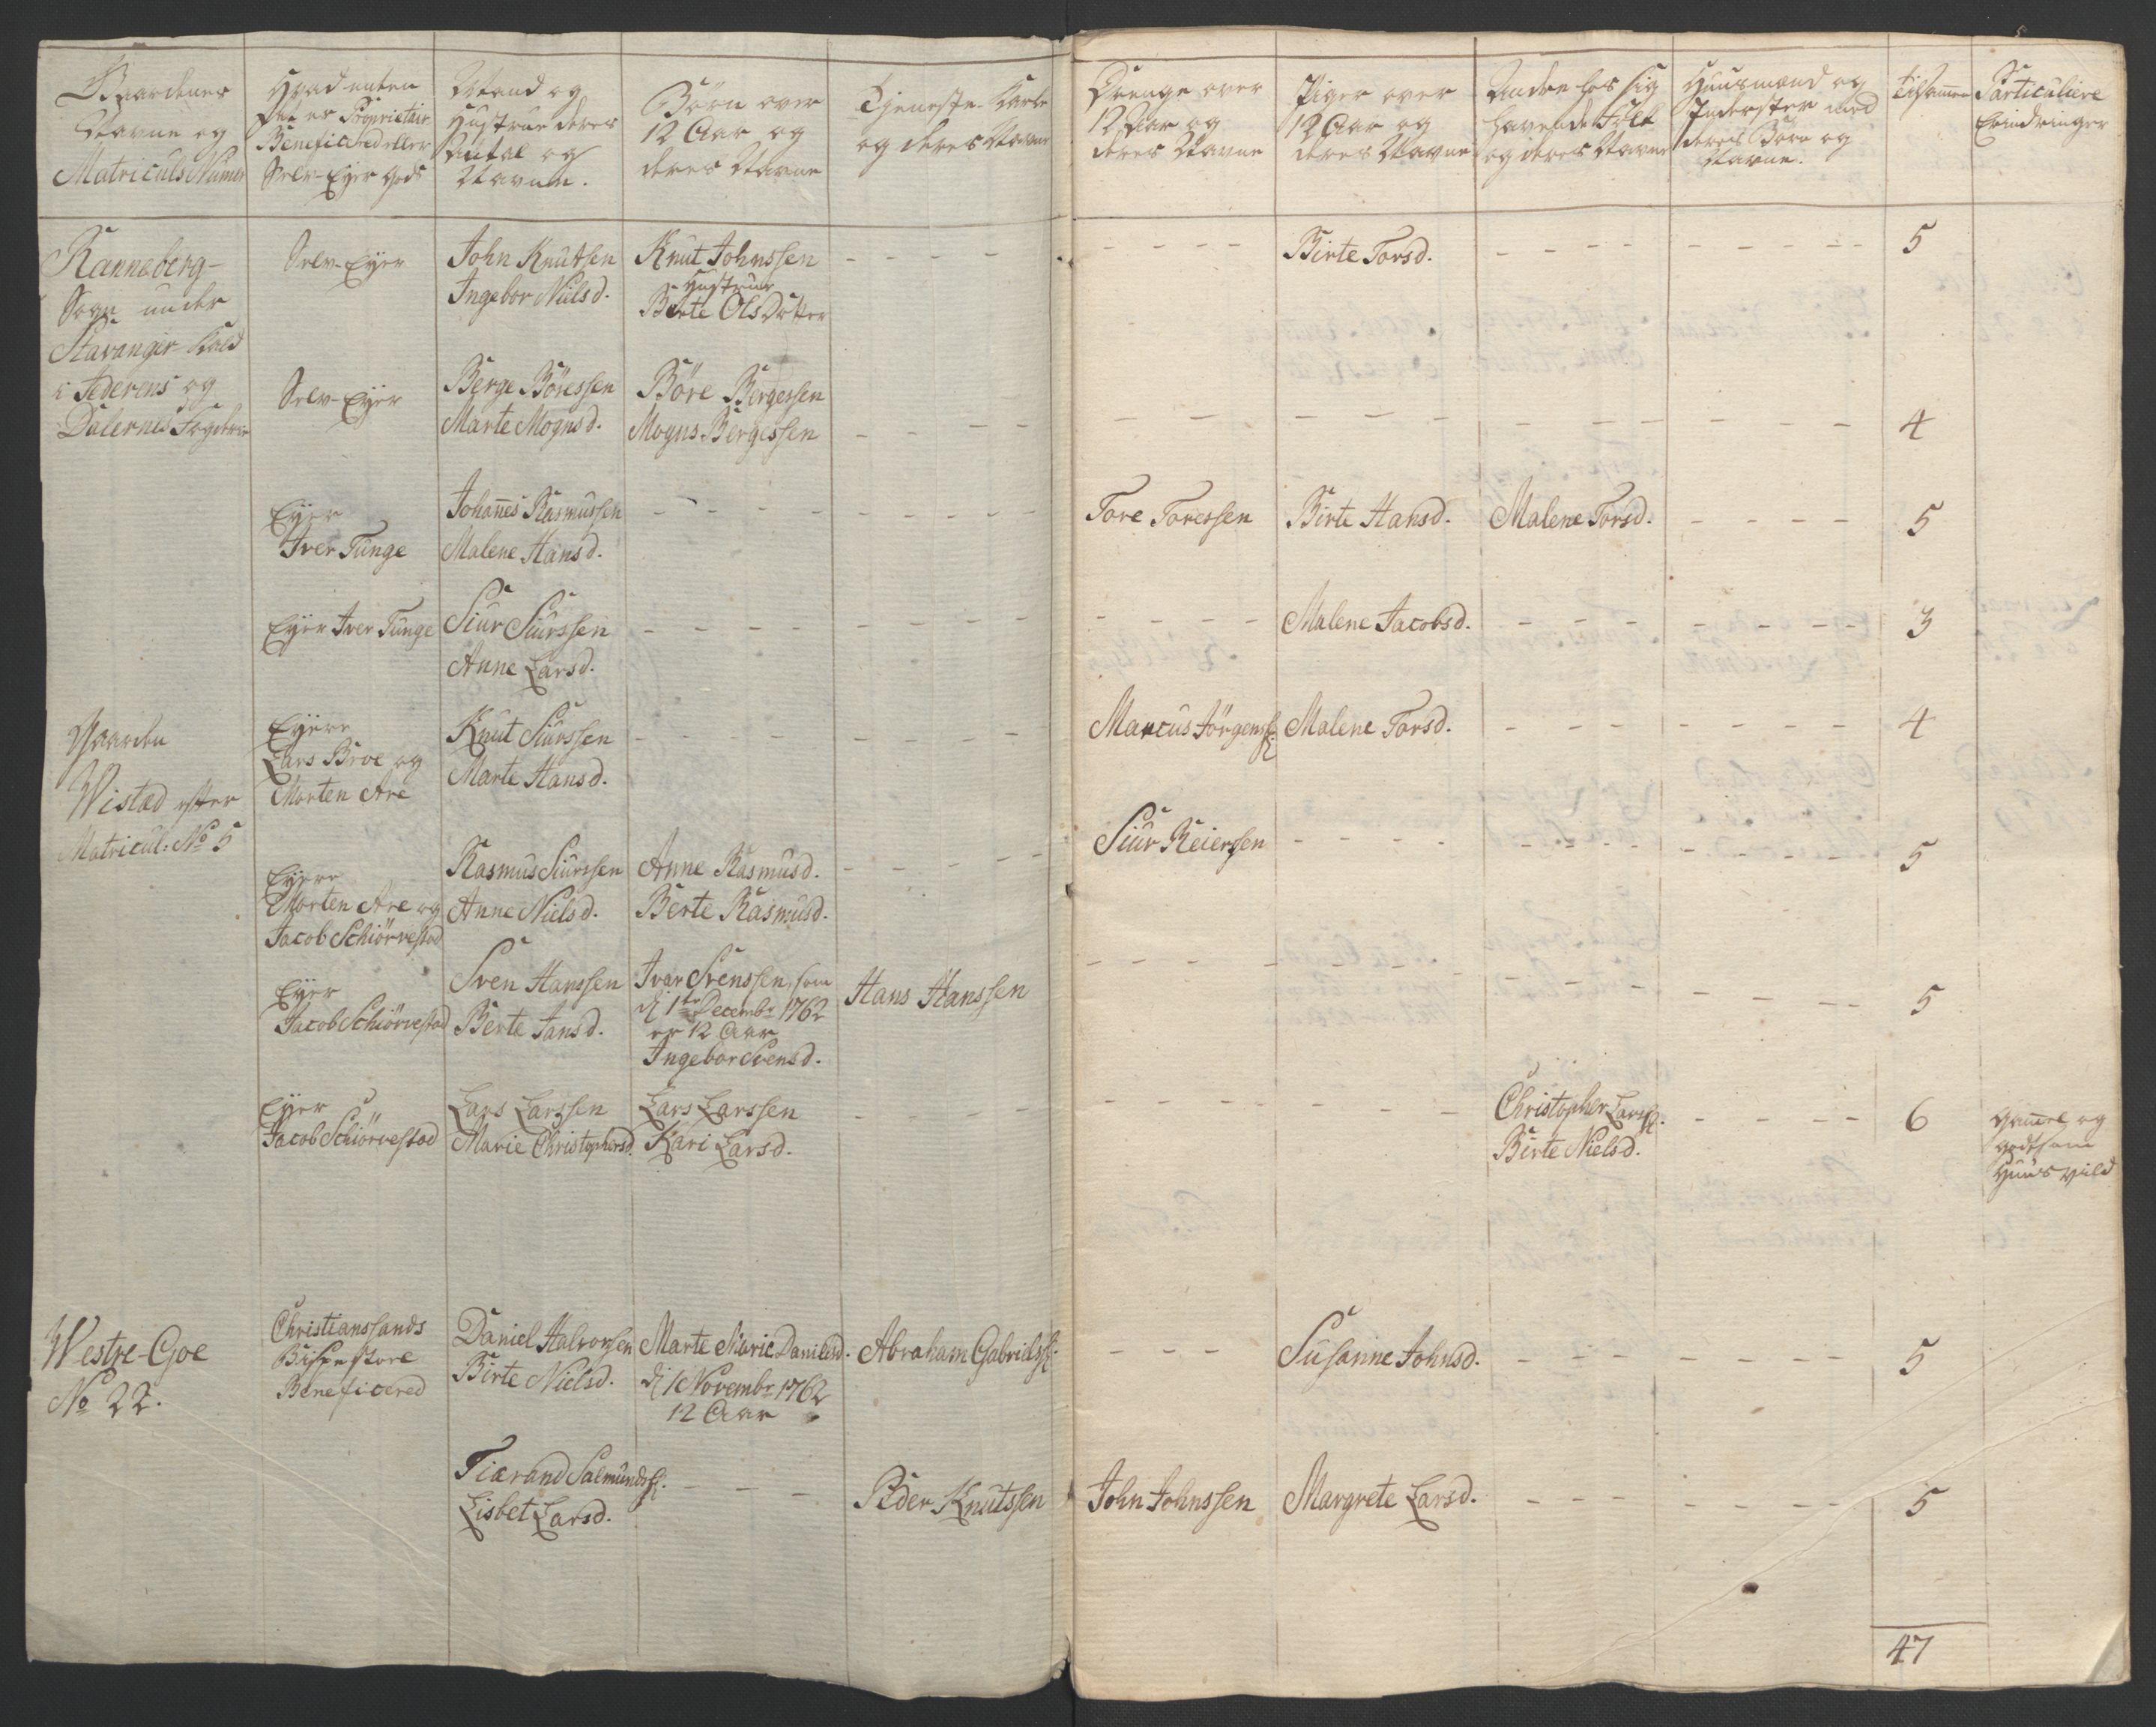 Gaardenes
Navne og
Matriculs Numer
Hvad enten
det er Proprietair
Beneficered eller
Selv-Eyer Gods
Mand og
Hustrue deres
Antal og
Navne.
Börn over
12 Aar og
deres Navne
Tjeneste-Karle
og deres Navne
Drenge over
12 Aar og
deres Navne
Piger over
12 Aar og
deres Navne
Andre hos sig
havende Folk
og deres Navne
Huusmænd og
Inderster med
deres Börn og
Navne.
tilsammen
Particuliere
Erindringer
Ranneberg-
Sogn under
Stavanger Kald
i Jederens og
Dalernes Fogderie
Selv-Eyer
John Knutsen
Ingebor Nielsd.
Knut Johnssen
Hustrue
Berte Olsdotter
- - - -
- - - -
Birte Torsd.
- - - -
- - - - -
5
Selv-Eyer
Berge Böressen
Marte Mognsd.
Böre Bergessen
Mogns Bergessen
- - - -
- - - -
- - -
- - - -
- - - -
4
Eyer
Iver Tunge
Johan̄es Rasmussen
Malene Hansd.
- - - -
- - - - -
Tore Toressen
Birte Hansd.
Malene Torsd.
- - - -
5
Eyer Iver Tunge
Siur Siurssen
Anne Larsd.
- - - - -
- - - - -
- - - -
Malene Jacobsd.
- - - -
- - - - -
3
Gaarden
Wistad efter
Matricul: No 5
Eyere
Lars Broe og
Morten Are
Knut Siurssen
Marte Hansd.
- - - - -
- - - -
Marcus Jörgenss:
Malene Torsd.
- - - -
- - - - -
4
Eyere
Morten Are og
Jacob Schiörvestad
Rasmus Siurssen
Anne Nielsd.
Anne Rasmusd.
Berte Rasmusd.
- - - - -
Siur Reierssen
- - - -
- - - -
- - - - -
5
Eyer
Jacob Schiörvestad
Sven Hanssen
Berte Jansd.
Ivar Svenssen, som
d 1te Decembr 1762
er 12 Aar
Ingebor Svensd.
Hans Hanssen
- - - -
- - - -
- - - -
- - - -
5
Eyer
Jacob Schiörvestad
Lars Larssen
Marie Christophersd.
Lars Larssen
Kari Larsd.
- - - -
- - - -
- - - -
Christopher Larss:
Birte Nielsd.
- - - -
6
Gam̄el og
godtsom
Huusvild
Westre-Goe
No 22.
Christianssands
Bispestore
Beneficered
Daniel Halvorsen
Birte Nielsd.
Marte Marie Danielsd.
d 1 Novembr 1762
12 Aar
Abraham Gabrielss:
- - -
Susanne Johnsd.
- - - -
- - - - -
5
Tiærand Salmundss:
Lisbet Larsd.
- - -
Peder Knutssen
John Johnssen
Margrete Larsd.
- - - -
- - - - -
5
47